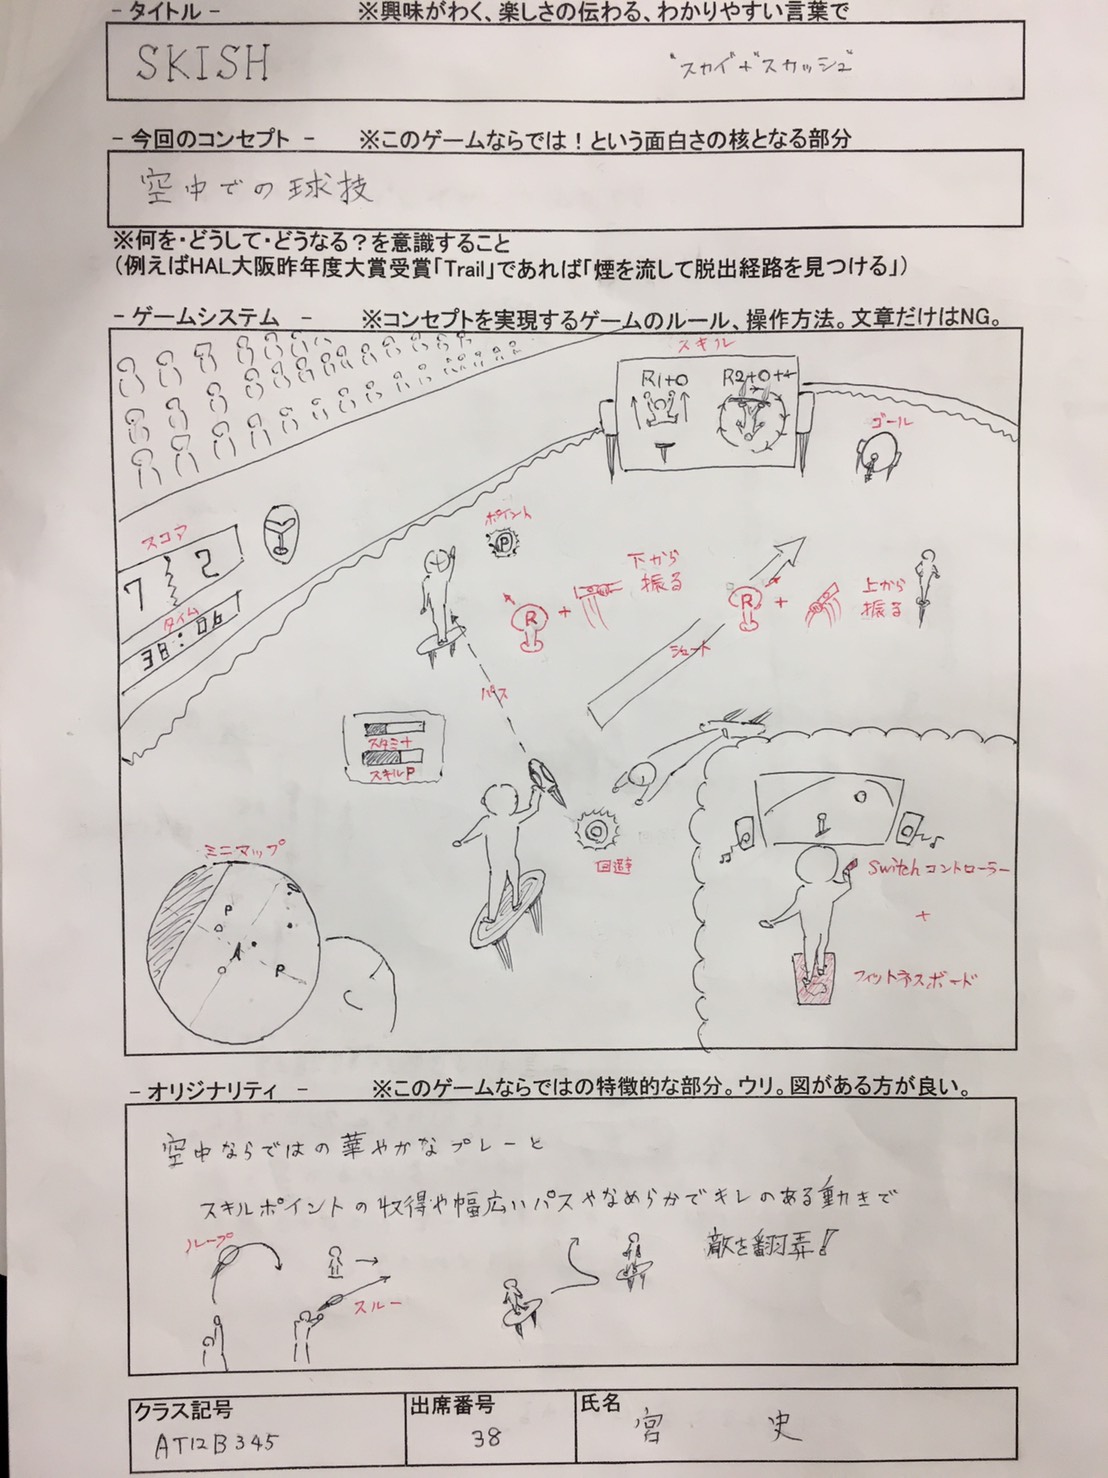 - タイトル - ※興味がわく、楽しさの伝わる、わかりやすい言葉で
SKISH "スカイ"+"スカッシュ"
- 今回のコンセプト - ※このゲームならでは!という面白さの核となる部分
空中での球技
※何を・どうして・どうなる?を意識すること
(例えばHAL大阪昨年度大賞受賞「Trail」であれば「煙を流して脱出経路を見つける」)
- ゲームシステム - ※コンセプトを実現するゲームのルール、操作方法。文章だけはNG。
スキル
R1+O R2+O+←
ゴール
スコア
7 2
タイム
38:06
ポイント
P
R + 下から
振る
R + 上から
振る
シュート
パス
スタミナ
スキルP
回避
ミニマップ
P
A
P
Switchコントローラー
+
フィットネスボード
- オリジナリティ - ※このゲームならではの特徴的な部分。ウリ。図がある方が良い。
空中ならではの華やかなプレーと
スキルポイントの収得や幅広いパスやなめらかでキレのある動きで
敵を翻弄!
ループ
スルー
クラス記号 出席番号 氏名
AT12B345 38 宮 史